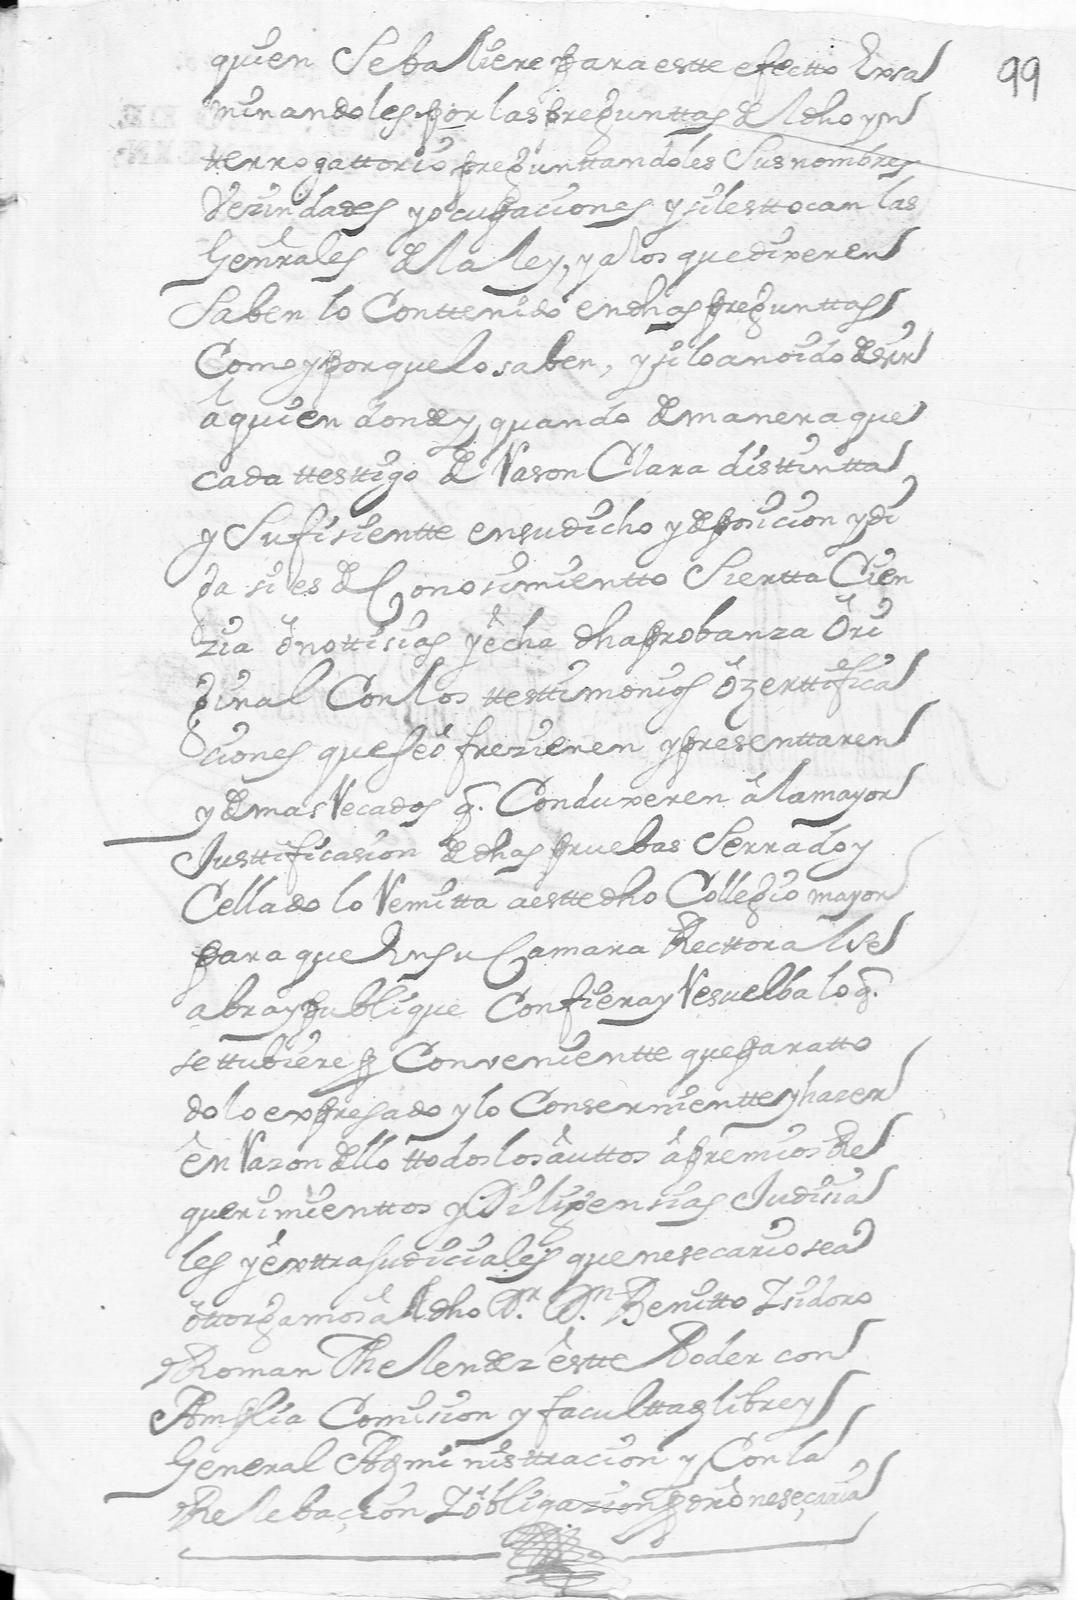 99
quien se baliere para estte efectto Exsa
minandoles por las preguntas del dho yn
terrogattorio preguntandoles sus nombres
Vezindades y ocupaciones y si les ttocan las
Generales de la ley, y a los que dixeren
Saben lo Conttenido en dhas preguntas
Como y porque lo saben, y si lo an oido dezir
á quien donde y quando de manera que
cada ttesttigo de Rason Clara disttintta
y Sufisientte en su dicho y deposicion y di
ga si es de Conosimientto Siertta Cien
zia ó nottisias y écha dha probanza Ori
ginal Con los ttesttimonios ó zerttifica
ciones que se ofrezieren y presenttaren
y demas Recados q. Conduxeren á la mayor
Justtificasion de dhas pruebas Serrado y
Cellado lo Remitta a estte dho Collegio mayor
para que En su Camara Recttoral se
abra y publique Confiera y Resuelba lo q.
se ttubiere p Convenientte que para tto
do lo expresado y lo Consernientte y hazer
én Razon dello ttodos los auttos ápremios Re
querimienttos y Diligensias Judisia
les y exttrajudiciales que nesecario sea
ottorgamos a el dho Dr. Dn. Benitto Isidoro
Roman Melendez éstte Poder con
Amplia Comision y facultta libre y
General Administtracion y Con la
Relebaçion I óbligazion p dro neseçaria